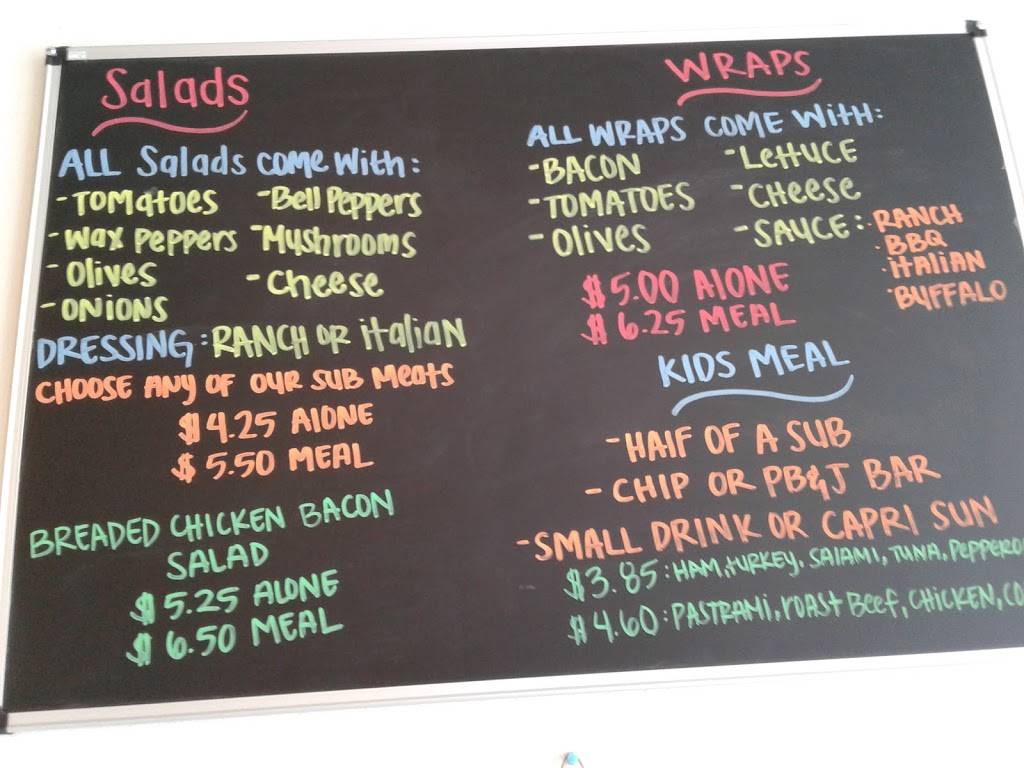 Salads
ALL Salads come With:
- TOMatoes - Bell Peppers
- Wax Peppers - Mushrooms
- Olives - Cheese
- ONIONS
DRESSING: RANCH OR italian
CHOOSE ANY OF OUR SUB Meats
$4.25 AlONE
$5.50 MEAL
BREADED CHICKEN BACON
SALAD
$5.25 ALONE
$6.50 MEAL
WRAPS
ALL WRAPS COME WitH:
- BACON - LettUCE
- TOMATOES - CHeese
- Olives - SAUCE: · RANCH
· BBQ
· itALiAN
· BUFFALO
$5.00 AlONE
$6.25 MEAL
KIDS MEAL
- HAlF OF A SUB
- CHIP OR PB&J BAR
- SMALL DRINK OR CAPRI SUN
$3.85: HAM, turkey, SAlAMI, TUNA,
$4.60: PASTRAMi, rOAST Beef, CHICKEN,